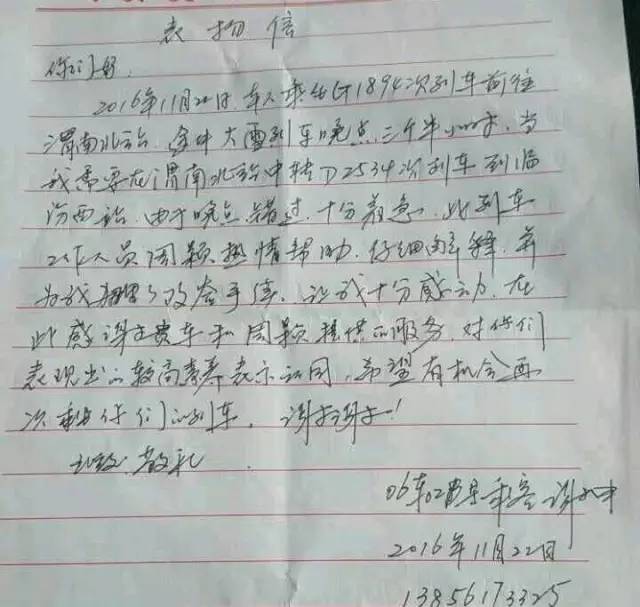 表扬信
你们好,
2016年11月22日本人乘坐G1894次列车前往
渭南北站,途中大雪列车晚点三个半小时,当
我需要在渭南北站中转D2534次列车到临
汾西站,由于晚点错过,十分着急,此列车
工作人员周颖热情帮助,仔细解释,并
为我办理了改签手续,让我十分感动,在
此感谢贵车和周颖提供的服务,对你们
表现出的较高素养表示认同,希望有机会再
次乘你们的列车,谢谢!
此致 敬礼
06车 乘客 谢
2016年11月22日
13856173325